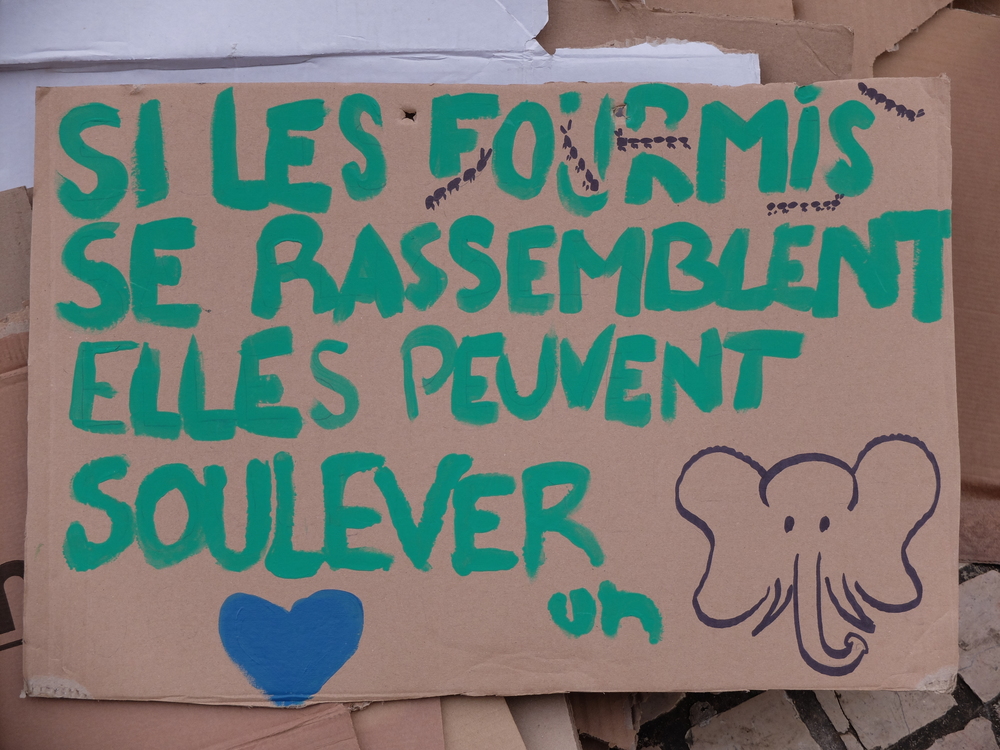 SI LES FOURMIS
SE RASSEMBLENT
ELLES PEUVENT
SOULEVER
un